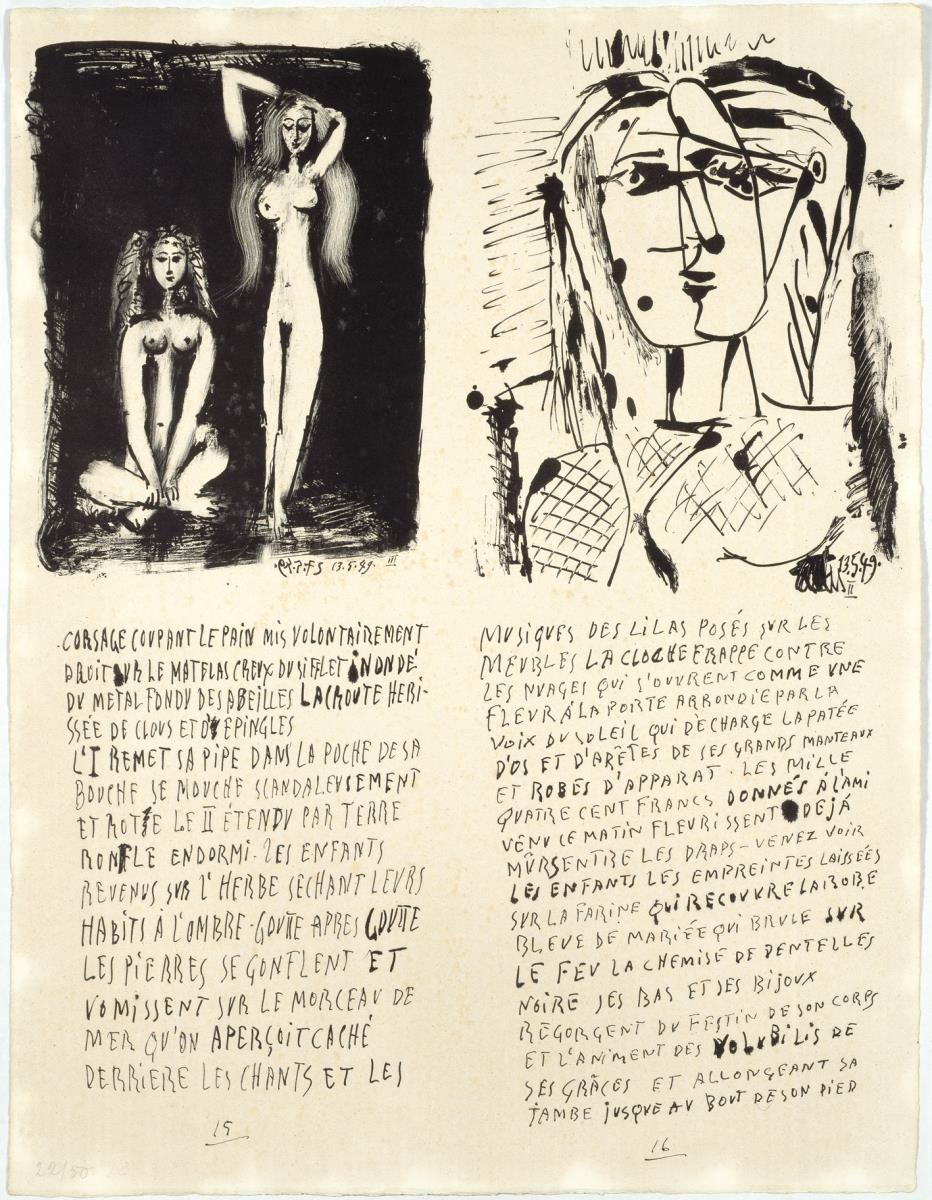 13.5.49.
III
13.5.49.
II
CORSAGE COUPANT LE PAIN MIS VOLONTAIREMENT
DROIT SUR LE MATELAS CREUX DU SIFFLET INONDÉ
DU METAL FONDU DES ABEILLES LA CROUTE HERI-
SSÉE DE CLOUS ET D'EPINGLES
L'I REMET SA PIPE DANS LA POCHE DE SA
BOUCHE SE MOUCHE SCANDALEUSEMENT
ET ROTE LE II ÉTENDU PAR TERRE
RONFLE ENDORMI. LES ENFANTS
REVENUS SUR L'HERBE SECHANT LEURS
HABITS À L'OMBRE - GOUTTE APRES GOUTTE
LES PIERRES SE GONFLENT ET
VOMISSENT SUR LE MORCEAU DE
MER QU'ON APERÇOIT CACHÉ
DERRIERE LES CHANTS ET LES
15
MUSIQUES DES LILAS POSÉS SUR LES
MEUBLES LA CLOCHE FRAPPE CONTRE
LES NUAGES QUI S'OUVRENT COMME UNE
FLEUR À LA PORTE ARRONDIE PAR LA
VOIX DU SOLEIL QUI DÈCHARGE LA PATÉE
D'OS ET D'ARÊTES DE SES GRANDS MANTEAUX
ET ROBES D'APPARAT. LES MILLE
QUATRE CENT FRANCS DONNÉS À L'AMI
VENU CE MATIN FLEURISSENT DEJÁ
MÛRS ENTRE LES DRAPS - VENEZ VOIR
LES ENFANTS LES EMPREINTES LAISSÉES
SUR LA FARINE QUI RECOUVRE LA ROBE
BLEUE DE MARIÉE QUI BRULE SUR
LE FEU LA CHEMISE DE DENTELLES
NOIRE SES BAS ET SES BIJOUX
REGORGENT DU FESTIN DE SON CORPS
ET L'ANIMENT DES VOLUBILIS DE
SES GRÂCES ET ALLONGEANT SA
JAMBE JUSQUE AU BOUT DE SON PIED
16
22/50